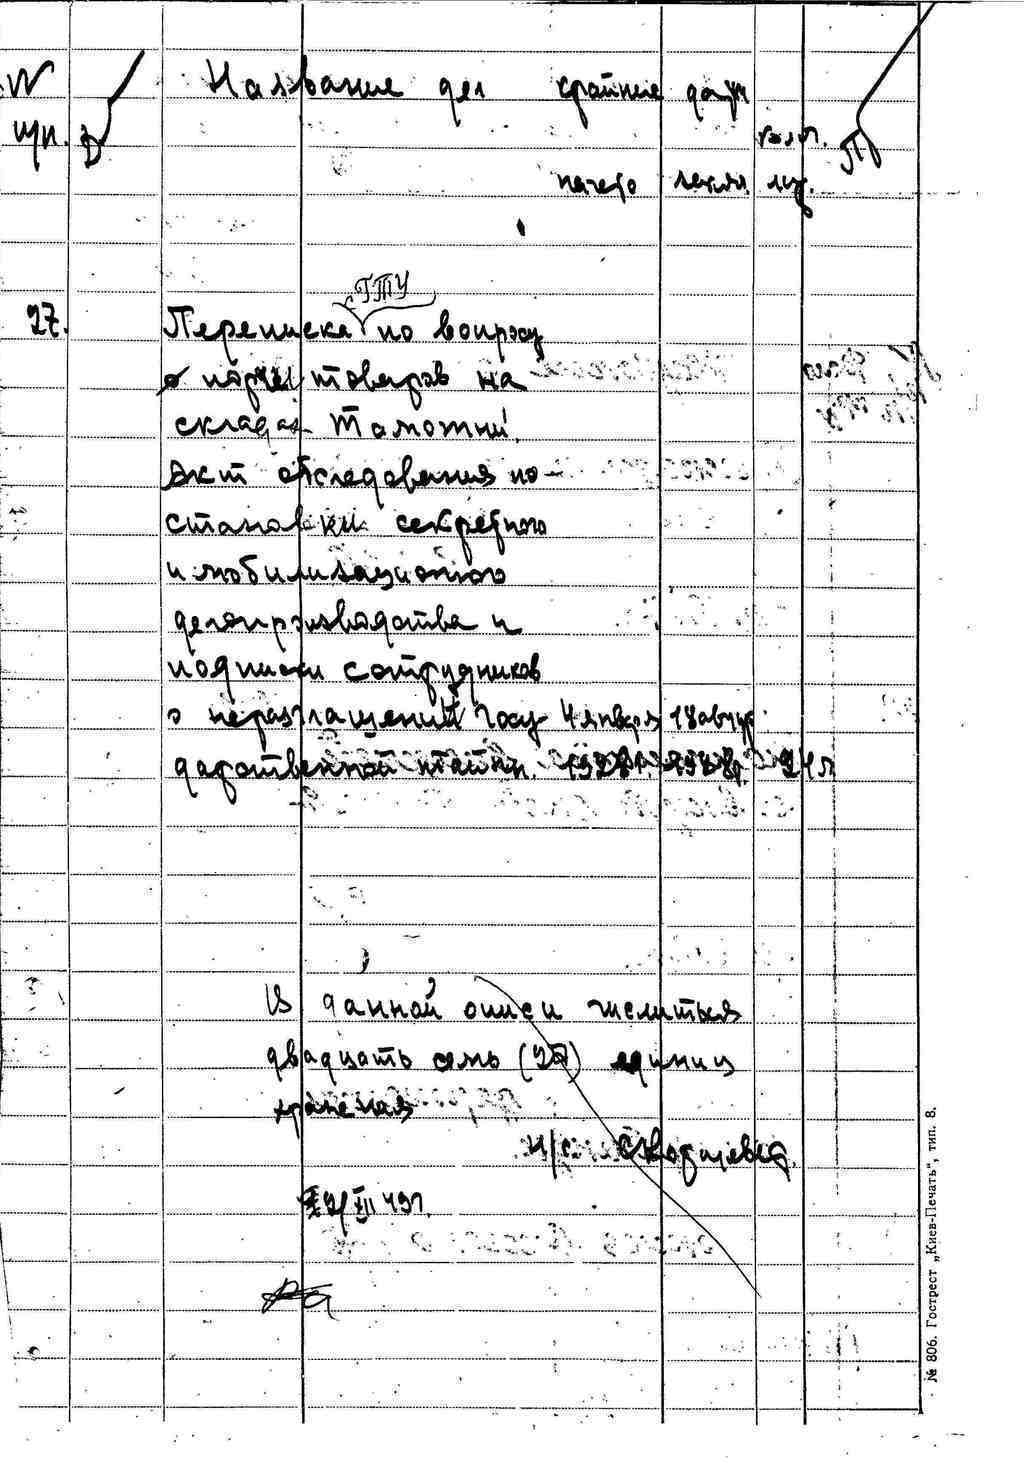 № Название дел крайние даты
кол.
начато
с ГТУ
27. Переписка по вопросу
о порчи товаров на
складах таможни.
Акт обследования по-
становки секретного
и мобилизационного
делопроизводства и
подписки сотрудников
о неразглашении госу- 4 января 18 август
дарственной тайны. 1928г. 24л
В данной описи числиться
двадцать семь (27) единиц
хранения
н/с
XII 49г.
№ 806. Гострест „Киев-Печать", тип. 8.